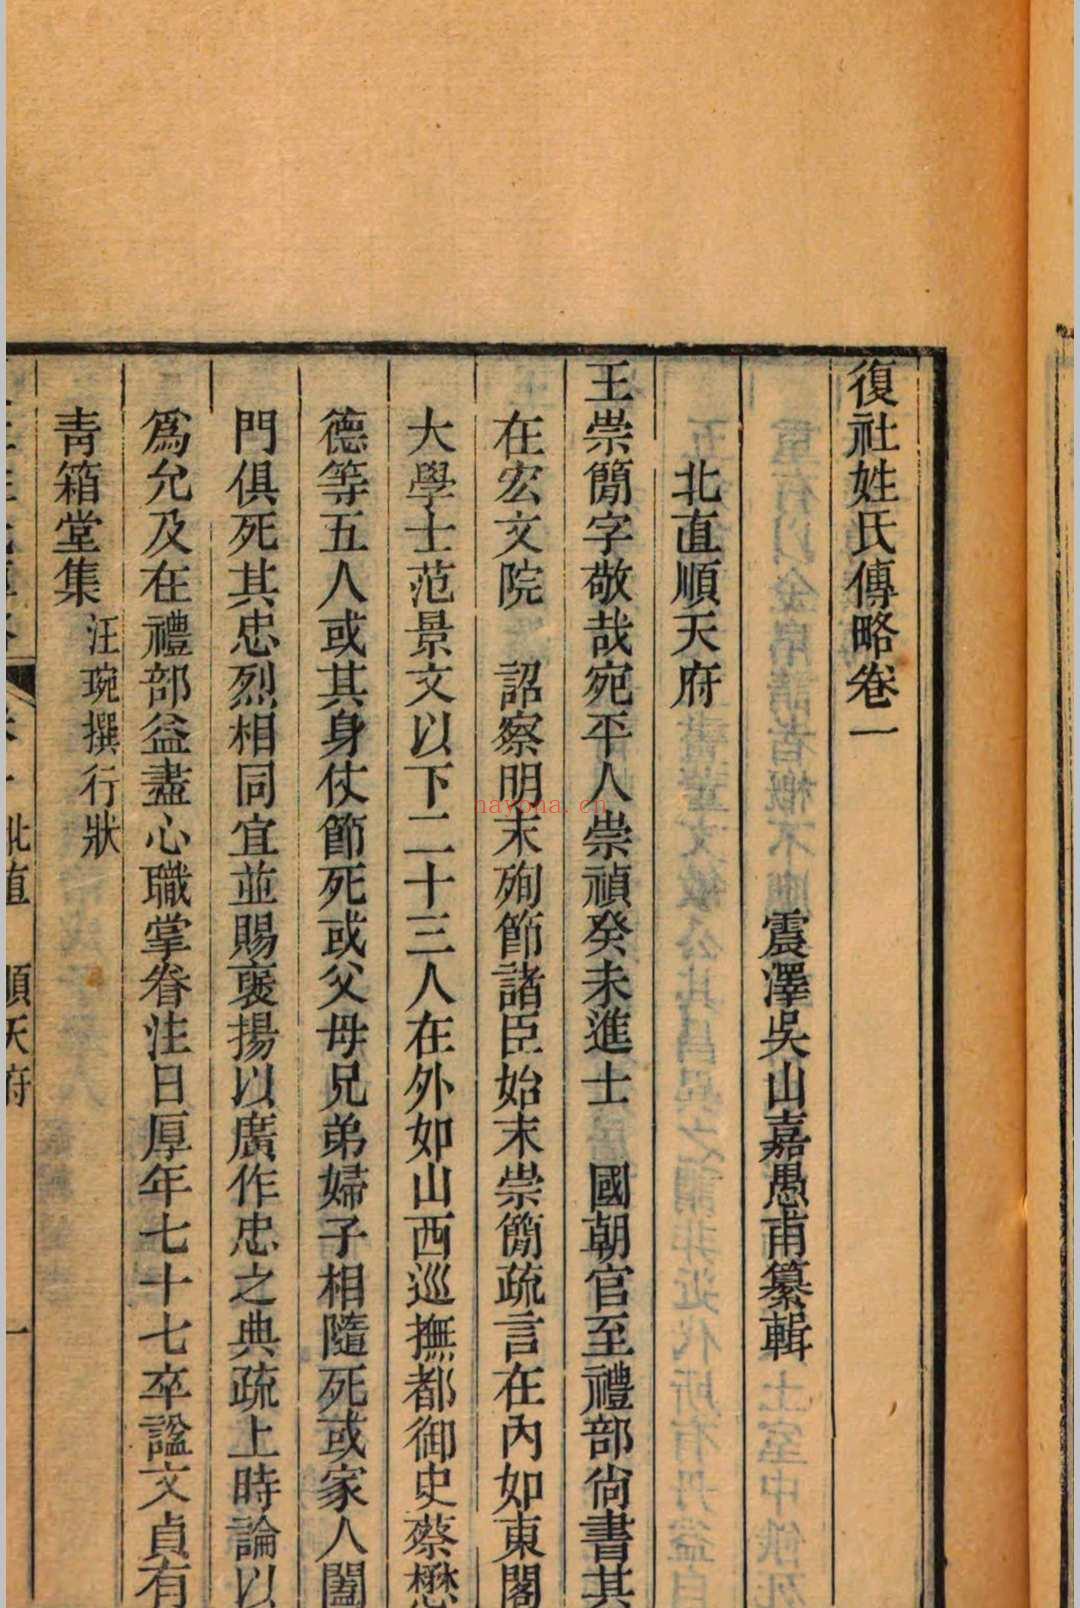 復社姓氏傳略卷一
震澤吳山嘉愚甫纂輯
北直順天府
王崇簡字敬哉宛平人崇禎癸未進士　國朝官至禮部尚書其
在宏文院　詔察明末殉節諸臣始末崇簡疏言在內如東閣
大學士范景文以下二十三人在外如山西巡撫都御史蔡懋
德等五人或其身仗節死或父母兄弟婦子相隨死或家人闔
門俱死其忠烈相同宜並賜褒揚以廣作忠之典疏上時論以
爲允及在禮部益盡心職掌眷注日厚年七十七卒諡文貞有
青箱堂集　汪琬撰行狀
北直　順天府　一
nayona.cn